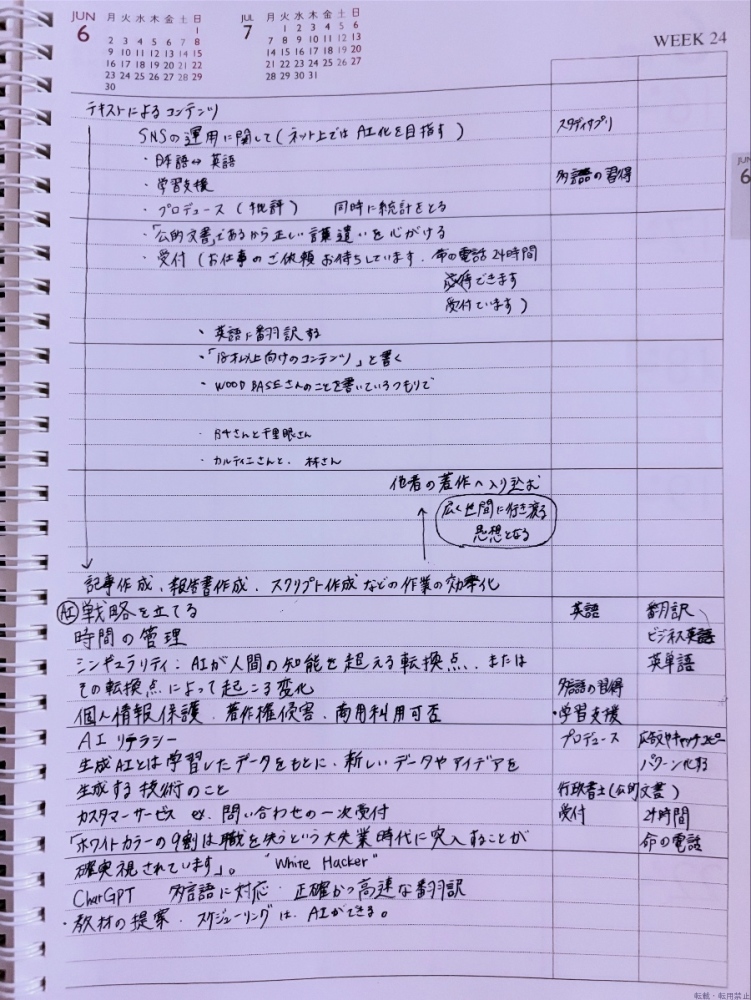 JUN
6
月 火 水 木 金 土 日
1
2 3 4 5 6 7 8
9 10 11 12 13 14 15
16 17 18 19 20 21 22
23 24 25 26 27 28 29
30
JUL
7
月 火 水 木 金 土 日
1 2 3 4 5 6
7 8 9 10 11 12 13
14 15 16 17 18 19 20
21 22 23 24 25 26 27
28 29 30 31
WEEK 24
JUN
6
テキストによるコンテンツ
SNSの運用に関して(ネット上では AI化を目指す)
スタディサプリ
・日本語↔英語
・学習支援
多言語の習得
・プロデュース(批評) 同時に統計をとる
・「公的文書」であるから正しい言葉遣いを心がける
・受付(お仕事のご依頼お待ちしています. 命の電話24時間
できます
受付ています)
・英語に翻訳する
・「18才以上向けのコンテンツ」と書く
・WOOD BASEさんのことを書いているつもりで
・さんと千里眼さん
・カルティニさんと、林さん
他者の著作へ入り込む
↑
広く世間に行き渡る
思想となる
記事作成、報告書作成、スクリプト作成などの作業の効率化
AI 戦略を立てる
英語 翻訳、
時間の管理
ビジネス英語
シンギュラリティ:AIが人間の知能を超える転換点、または
英単語
その転換点によって起こる変化
多言語の習得
個人情報保護・著作権侵害・商用利用可否
・学習支援
AIリテラシー
プロデュース 広告文やキャッチコピー
生成AIとは学習したデータをもとに、新しいデータやアイデアを
パターン化する
生成する技術のこと
行政書士(公的文書)
カスタマーサービス ex. 問い合わせの一次受付
受付 24時間
「ホワイトカラーの9割は職を失うという大失業時代に突入することが
命の電話
確実視されています」。 "White Hacker"
ChatGPT 多言語に対応・正確かつ高速な翻訳
・教材の提案・スケジューリングは、AIができる。
転載・転用禁止